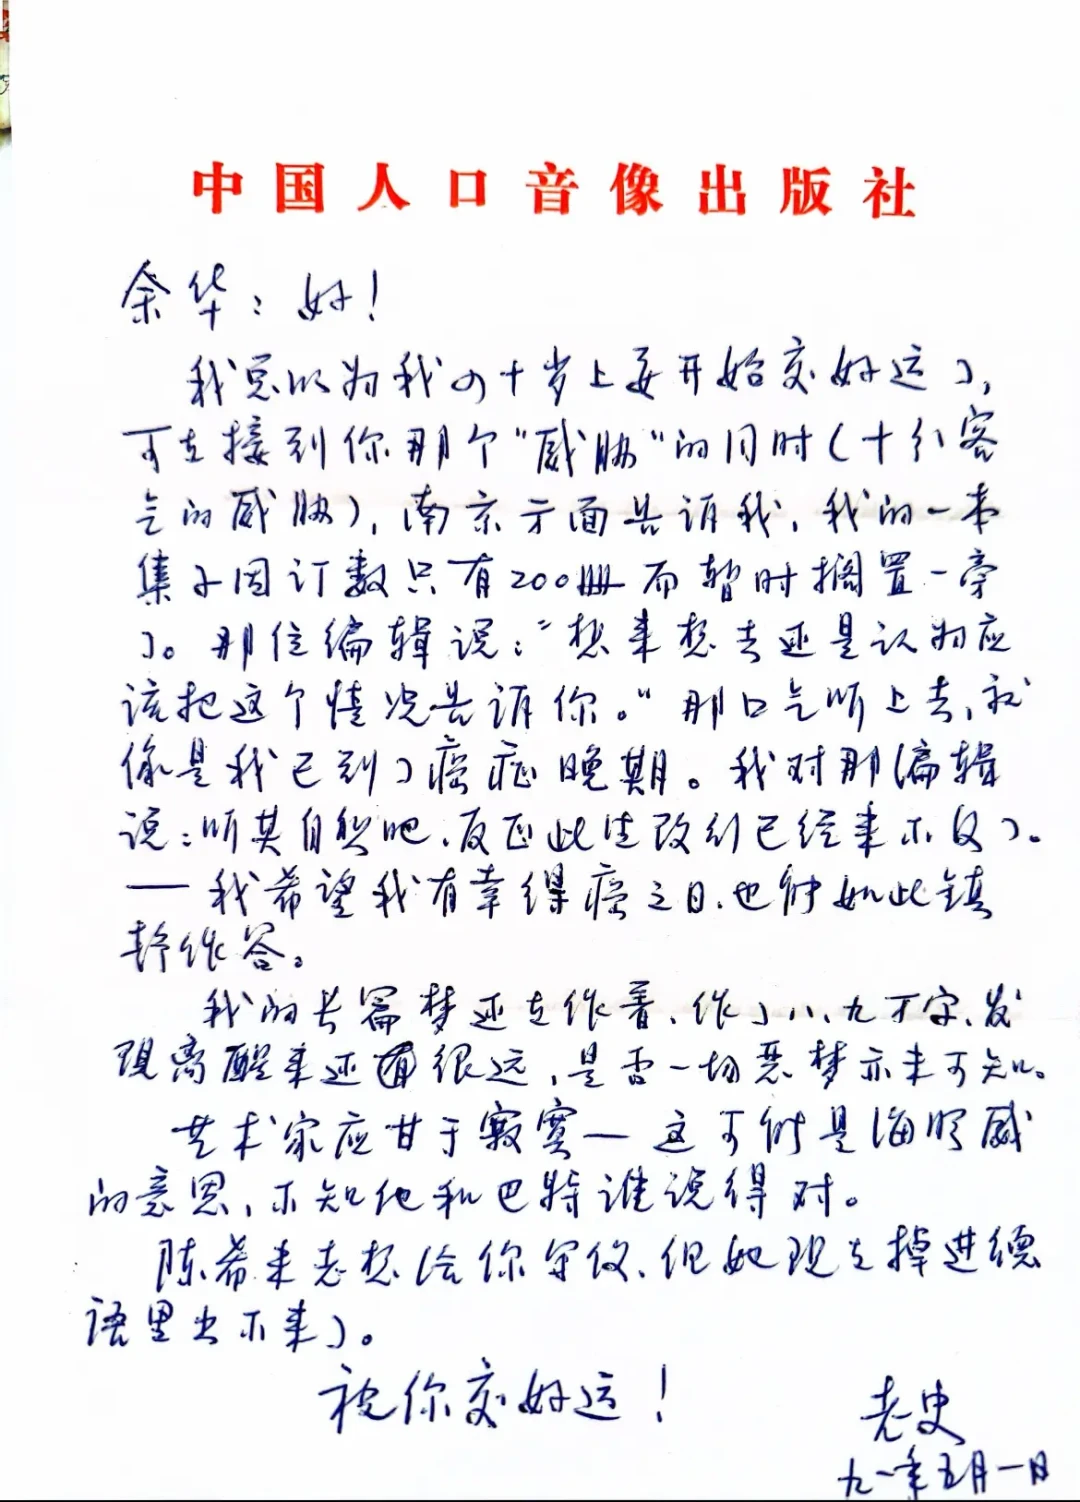 中国人口音像出版社
余华：好！
我总以为我四十岁上要开始交好运了，
可在接到你那个“威胁”的同时（十分客
气的威胁），南京方面告诉我，我的一本
集子因订数只有200册而暂时搁置一旁
了。那位编辑说：“想来想去还是认为应
该把这个情况告诉你。”那口气听上去，就
像是我已到了癌症晚期。我对那编辑
说：听其自然吧，反正此生改行已经来不及了。
——我希望我有幸得癌之日，也能如此镇
静作答。
我的长篇梦还在作着，作了八、九万字，发
现离醒来还有很远，是否一场恶梦亦未可知。
艺术家应甘于寂寞—这可能是海明威
的意思，不知他和巴特谁说得对。
陈希米老想给你写信，但她现在掉进德
语里出不来了。
祝你交好运！
老史
九一年五月一日